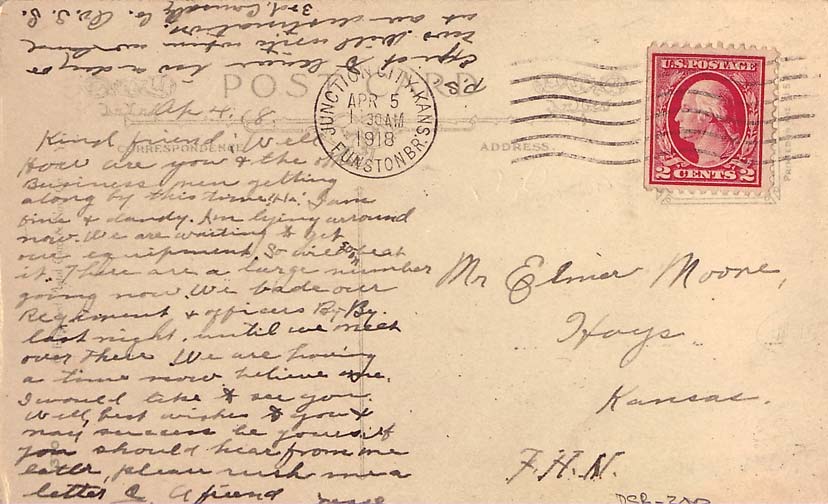 POST CARD
CORRESPONDENCE
ADDRESS.
JUNCTION CITY, KANS.
APR 5
1 30AM
1918
FUNSTON BR.
U.S. POSTAGE
2 CENTS 2
Ap 4. 18.
Kind friend; Well
How are you & the
Business men getting
along by this time. Ha. I am
fine & dandy. Am lying arround
now. We are waiting to get
our equipment. So will beat
it soon. There are a large number
going now. We bade our
Regiment & officers By. By.
last night, until we meet
over There. We are having
a time now believe me.
I would like to see you.
Well, best wishes to you &
may success be yours. if
you should hear from me
later, please rush me a
letter. A friend
Mr Elmer Moore,
Hays
Kansas.
F.H.N.
P.S.
Expect to leave in a day or
two. Will write when we land
at our destination.
3rd. Casualty Co.